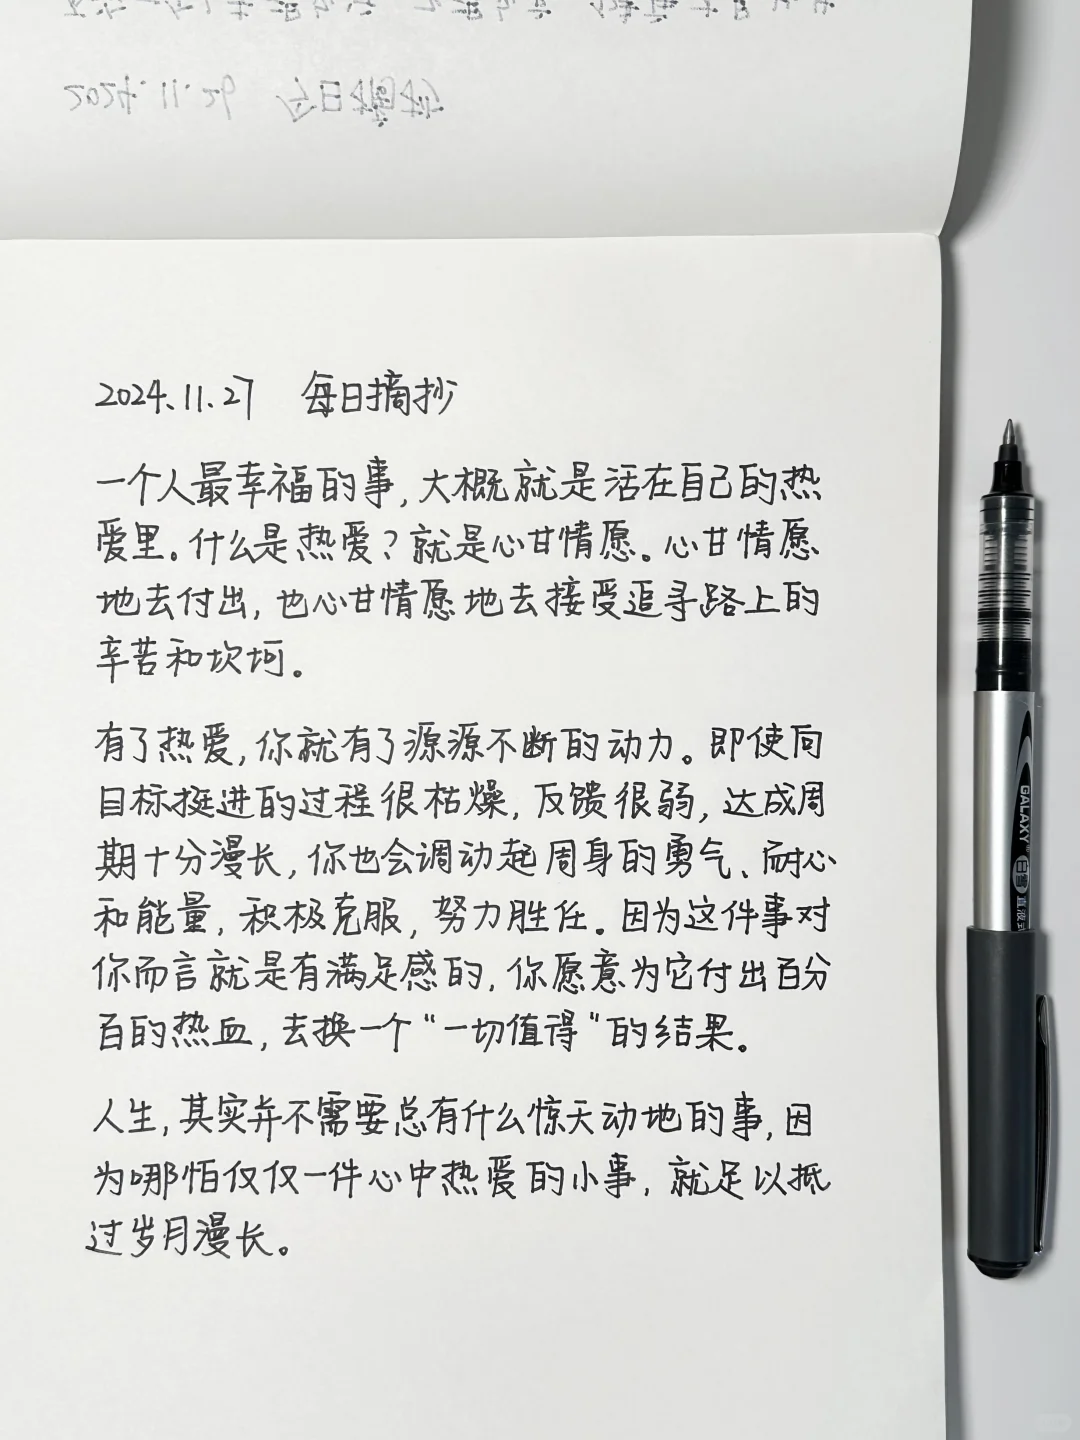 2024.11.29 今日摘抄
2024.11.27 每日摘抄
一个人最幸福的事,大概就是活在自己的热
爱里。什么是热爱?就是心甘情愿。心甘情愿
地去付出,也心甘情愿地去接受追寻路上的
辛苦和坎坷。
有了热爱,你就有了源源不断的动力。即使向
目标挺进的过程很枯燥,反馈很弱,达成周
期十分漫长,你也会调动起周身的勇气、耐心
和能量,积极克服,努力胜任。因为这件事对
你而言就是有满足感的,你愿意为它付出百分
百的热血,去换一个“一切值得”的结果。
人生,其实并不需要总有什么惊天动地的事,因
为哪怕仅仅一件心中热爱的小事,就足以抵
过岁月漫长。
GALAXY 白雪 直液式